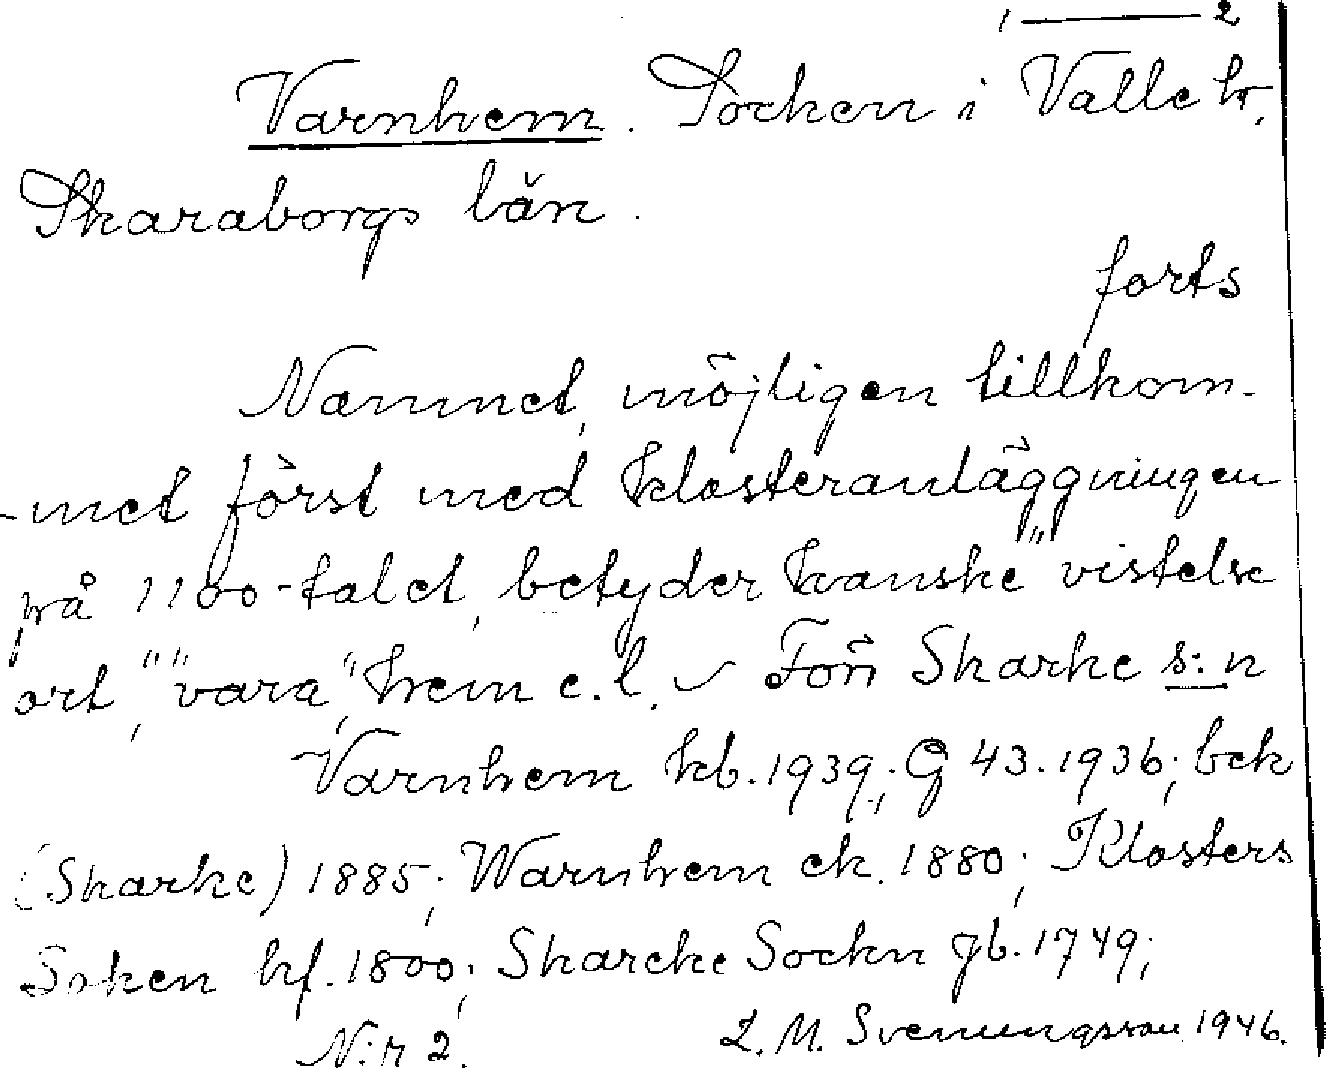 1 — 2
Varnhem. Socken i Valle hr,
Skaraborgs län.
forts
Namnet, möjligen tillkom-
-met först med klosteranläggningen
på 1100-talet, betyder kanske "vistelse
ort", "vara", hem e.l. Förr Skarke s:n
Varnhem kb. 1939; G 43. 1936; bek
(Skarke) 1885; Warnhem ek. 1880; Klosters
Soken hf. 1800; Skarcke Sockn jb. 1749;
N:r 2. L. M. Svenungsson 1946.